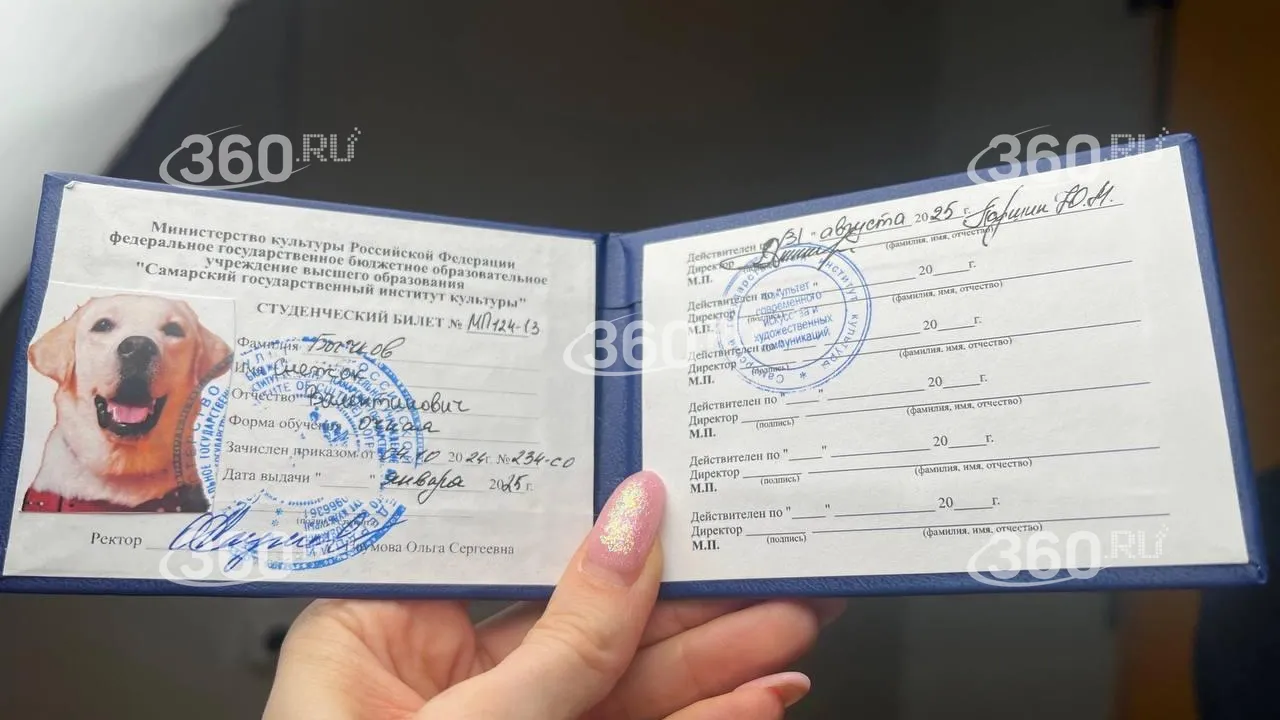 360.RU
360.RU
Министерство культуры Российской Федерации
федеральное государственное бюджетное образовательное
учреждение высшего образования
"Самарский государственный институт культуры"
СТУДЕНЧЕСКИЙ БИЛЕТ № МП124-13
Фамилия
Имя
Отчество Валентинович
Форма обучения очная
Зачислен приказом от 20 24г. № 234-со
Дата выдачи " " января 2025г.
Ректор Наумова Ольга Сергеевна
Действителен по "31" августа 2025 г. Паршин Ю.М.
Директор (фамилия, имя, отчество)
М.П.
факультет
современного
искусства и
художественных
коммуникаций
Действителен по " 20 г.
Директор (подпись) (фамилия, имя, отчество)
М.П.
Действителен по 20 г.
Директор (подпись) (фамилия, имя, отчество)
М.П.
Действителен по " " 20 г.
Директор (подпись) (фамилия, имя, отчество)
М.П.
Действителен по " " 20 г.
Директор (подпись) (фамилия, имя, отчество)
М.П.
Действителен по " " 20 г.
Директор (подпись) (фамилия, имя, отчество)
М.П.
360
360
360.RU